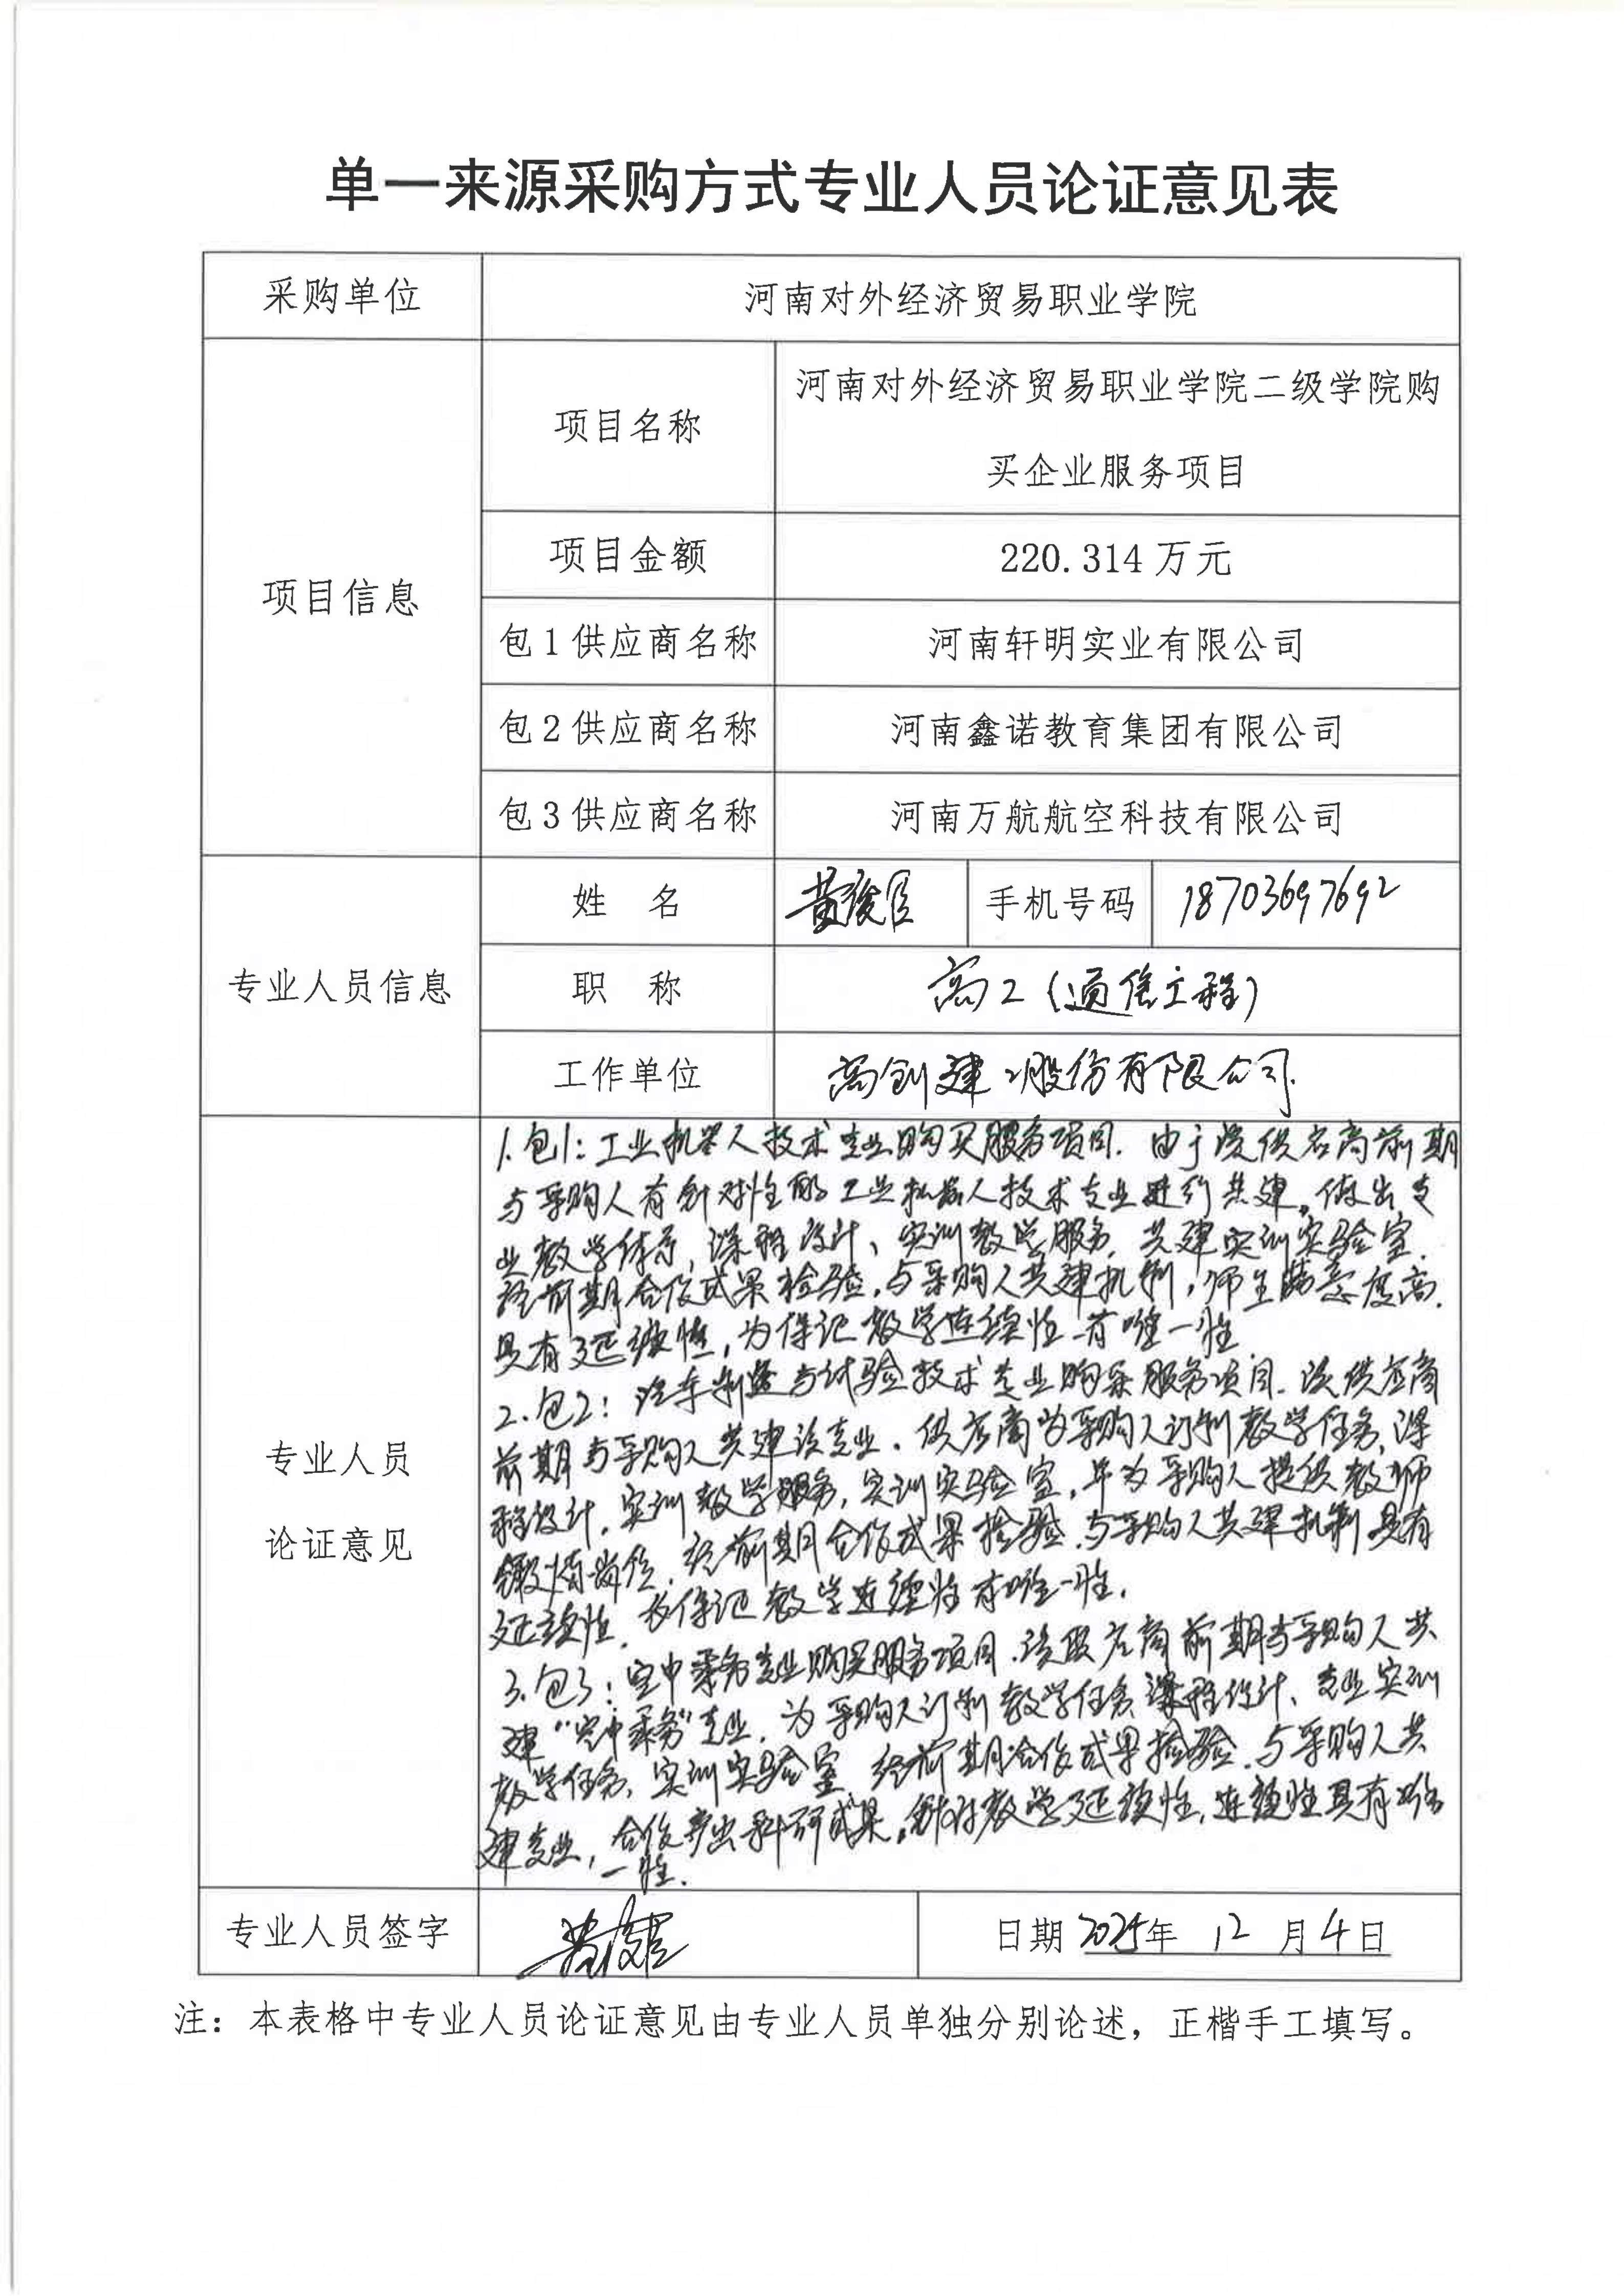 单一来源采购方式专业人员论证意见表
采购单位
河南对外经济贸易职业学院
项目信息
项目名称
河南对外经济贸易职业学院二级学院购
买企业服务项目
项目金额
220.314万元
包1供应商名称
河南轩明实业有限公司
包2供应商名称
河南鑫诺教育集团有限公司
包3供应商名称
河南万航航空科技有限公司
专业人员信息
姓 名
黄俊臣
手机号码
18703697692
职 称
高工(通信工程)
工作单位
高创建工股份有限公司.
专业人员
论证意见
1.包1:工业机器人技术专业购买服务项目.由于该供应商前期
与采购人有针对性的工业机器人技术专业进行共建。做出专
业教学体系,课程设计、实训教学服务,共建实训实验室.
经前期合作成果检验,与采购人共建机制,师生满意度高.
具有延续性,为保证教学连续性有唯一性
2.包2:汽车制造与试验技术专业购买服务项目.该供应商
前期与采购人共建该专业.供应商为采购人订制教学任务,课
程设计,实训教学服务,实训实验室,并为采购人提供教师
锻炼岗位.经前期合作成果检验.与采购人共建机制具有
延续性,为保证教学连续性有唯一性.
3.包3:空中乘务专业购买服务项目.该供应商前期与采购人共
建"空中乘务"专业,为采购人订制教学任务课程设计、专业实训
教学任务,实训实验室 经前期合作成果检验.与采购人共
建专业,合作产出科研成果,针对教学延续性,连续性具有唯
一性.
专业人员签字
黄俊臣
日期 2025年 12 月 4 日
注:本表格中专业人员论证意见由专业人员单独分别论述,正楷手工填写。